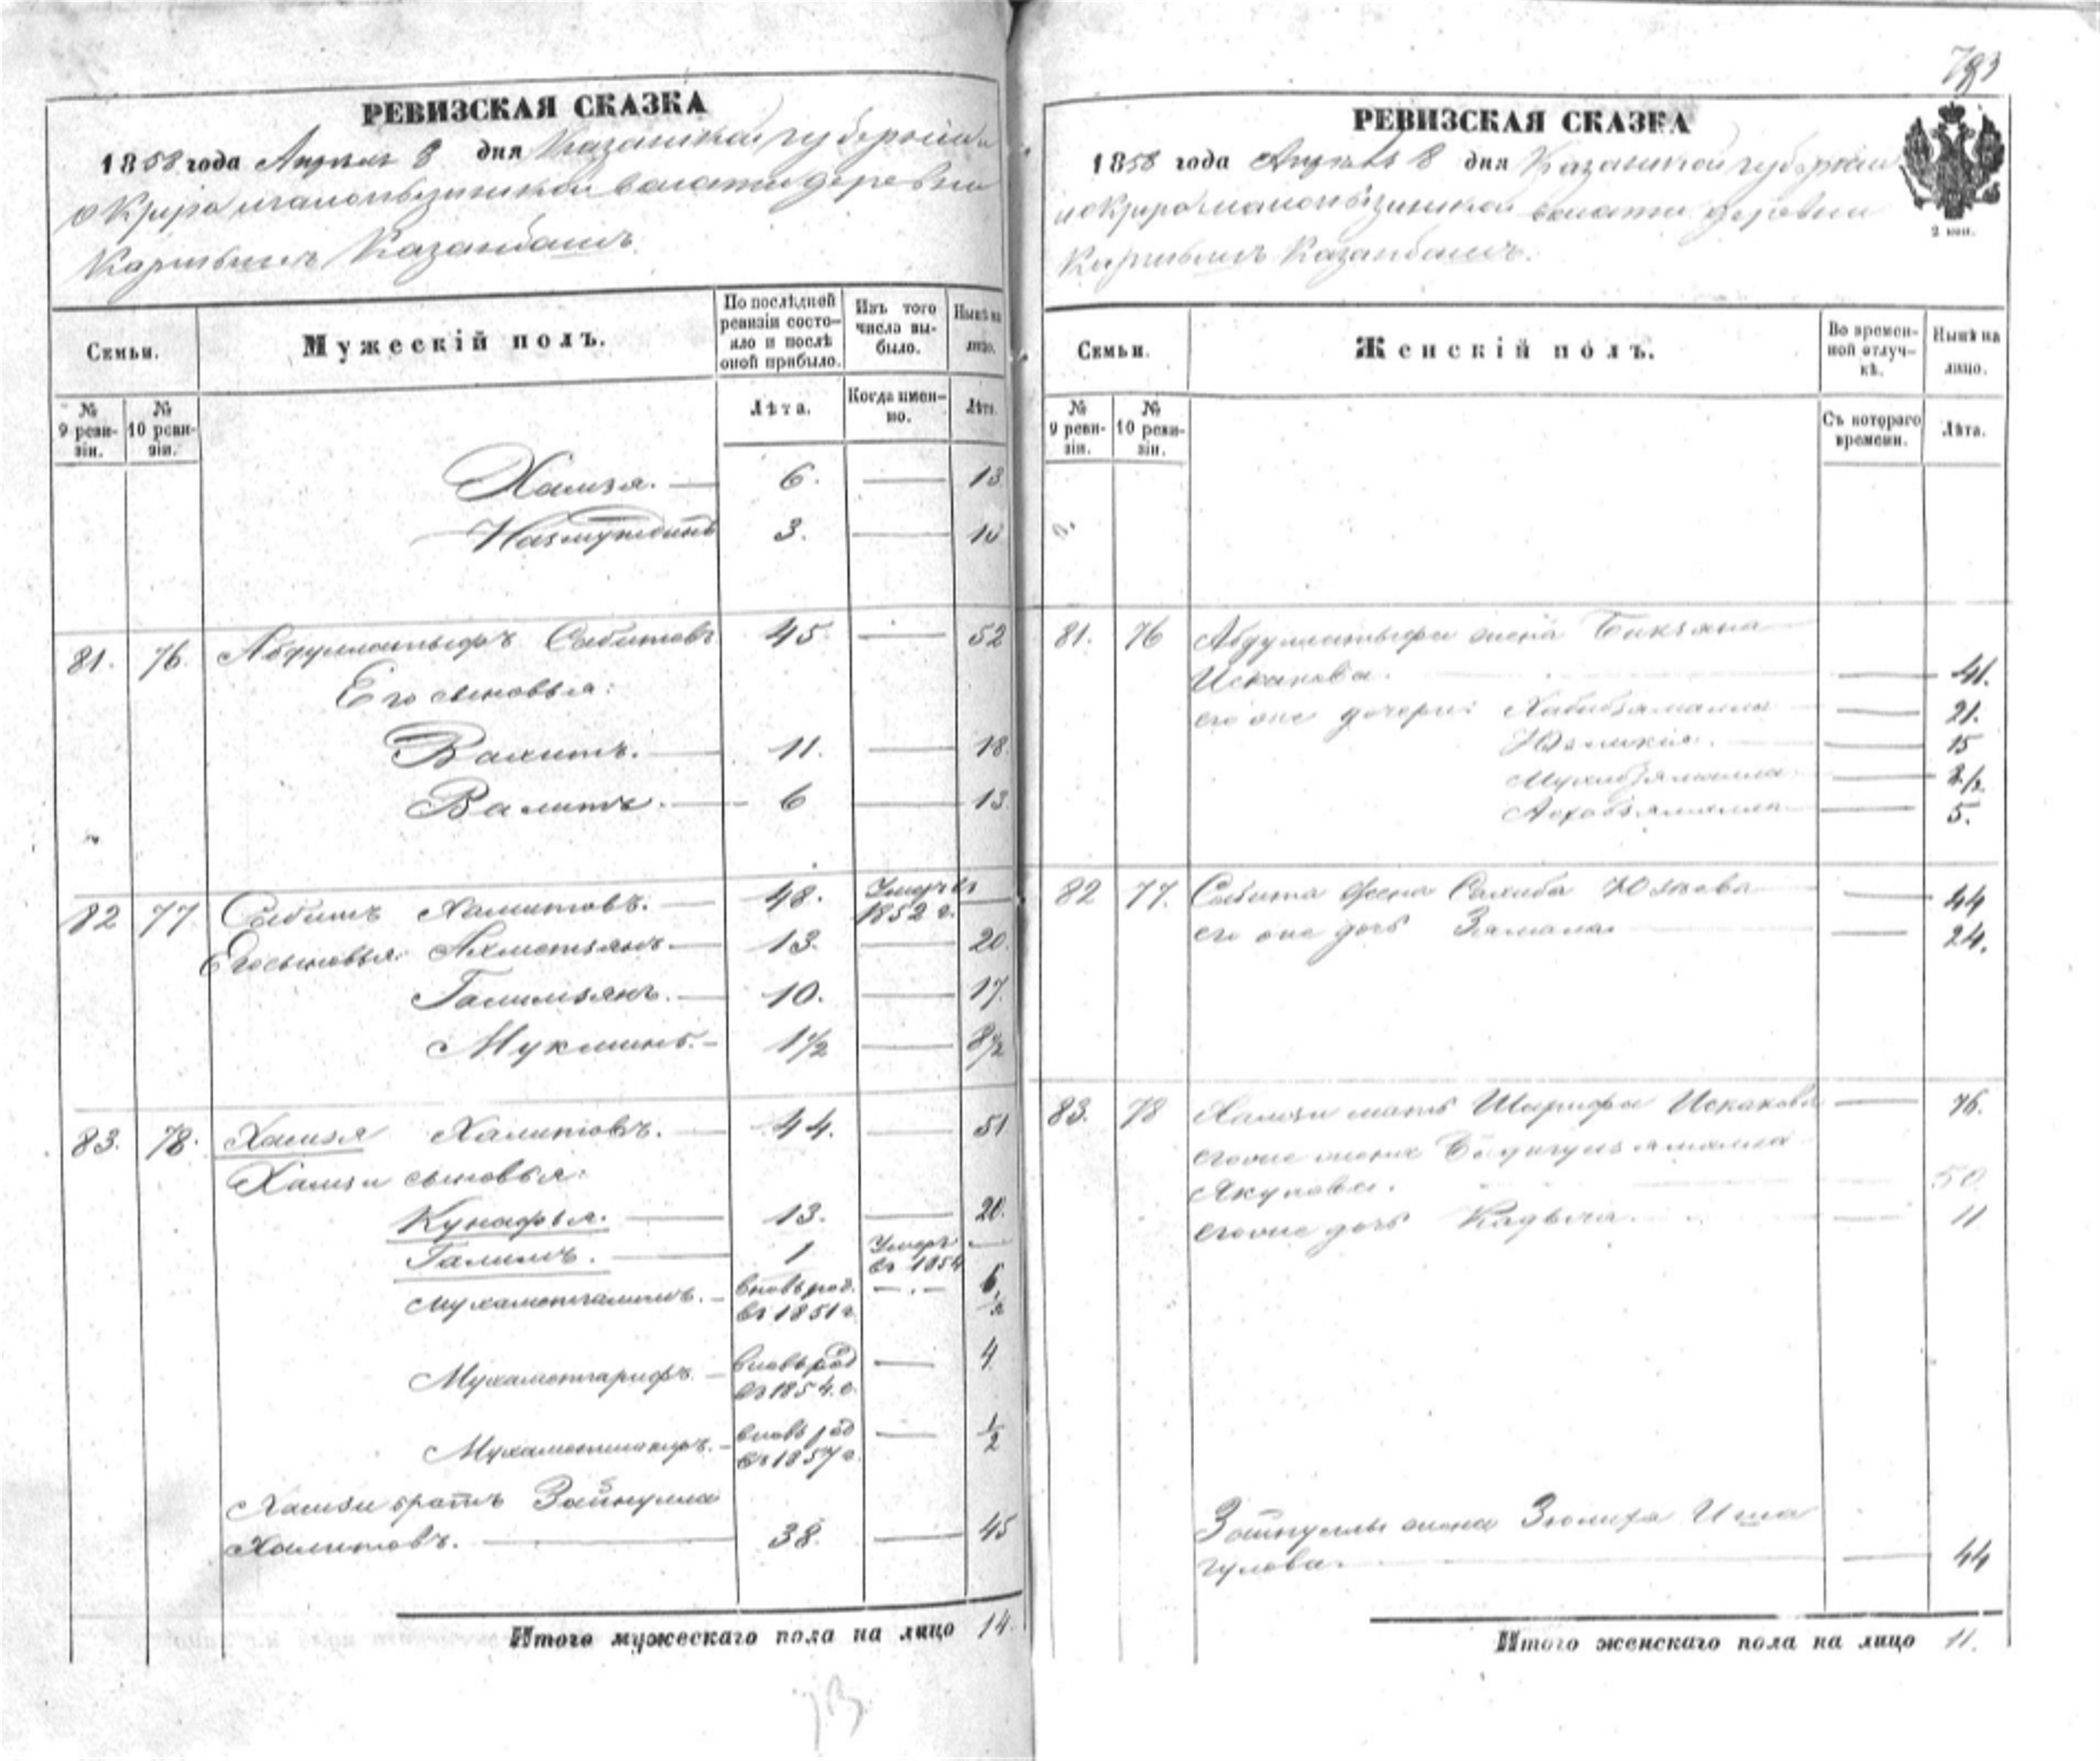 783
РЕВИЗСКАЯ СКАЗКА
1858 года Апреля 8 дня Казанской губернiи
округа волости деревни
Казанбашъ
Семьи.
Мужескiй полъ.
По послѣдней ревизiи состояло и послѣ оной прибыло.
Изъ того числа выбыло.
Нынѣ на лицо.
№ 9 ревизiи.
№ 10 ревизiи.
Лѣта.
Когда именно.
Лѣта.
Хамзя. — 6. — 13
3. — 10
81. 76. Абдуллатыфъ Сабитовъ 45. — 52
Его сыновья:
Вахитъ. — 11. — 18
Валитъ. — 6 — 13.
82 77 Сабитъ Хамитовъ. — 48. Умеръ въ 1852 г. —
Его сыновья: Ахметзянъ — 13. — 20.
Галимзянъ. — 10. — 17.
Мукминъ. — 1 1/2 — 8 1/2
83. 78. Хамзя Халитовъ. — 44. — 51
Хамзи сыновья:
Кунафья. — 13. — 20.
Галимъ. — 1 Умеръ въ 1854 —
Мухаметгалимъ. — вновь род. въ 1851 г. — 6 1/2
Мухаметгарифъ — вновь род въ 1854. г. — 4
Мухаметшакиръ. — вновь род въ 1857 г. — 1/2
Хамзи братъ Зайнулла
Халитовъ. — 38. — 45
Итого мужескаго пола на лицо 14.
РЕВИЗСКАЯ СКАЗКА
1858 года Апреля 8 дня Казанской губернiи
округа волости деревни
Казанбашъ.
2 коп.
Семьи.
Женскiй полъ.
Во временной отлучкѣ.
Нынѣ на лицо.
№ 9 ревизiи.
№ 10 ревизiи.
Съ котораго времени.
Лѣта.
81. 76 Абдуллатыфа жена Бикзяна
Искакова. — 41.
его же дочери: Хабибзямалла — 21.
— 15
—
— 5.
82 77. Сабита жена Сахиба — 44
его же дочь Зямала — 24.
83. 78 Хамзи мать Шарифа Искакова — 76.
его же жена
Якупова. — 50
его же дочь Кадыча. — 11
Зайнуллы жена Зюлифа Ишма
гулова. — 44
Итого женскаго пола на лицо 11.